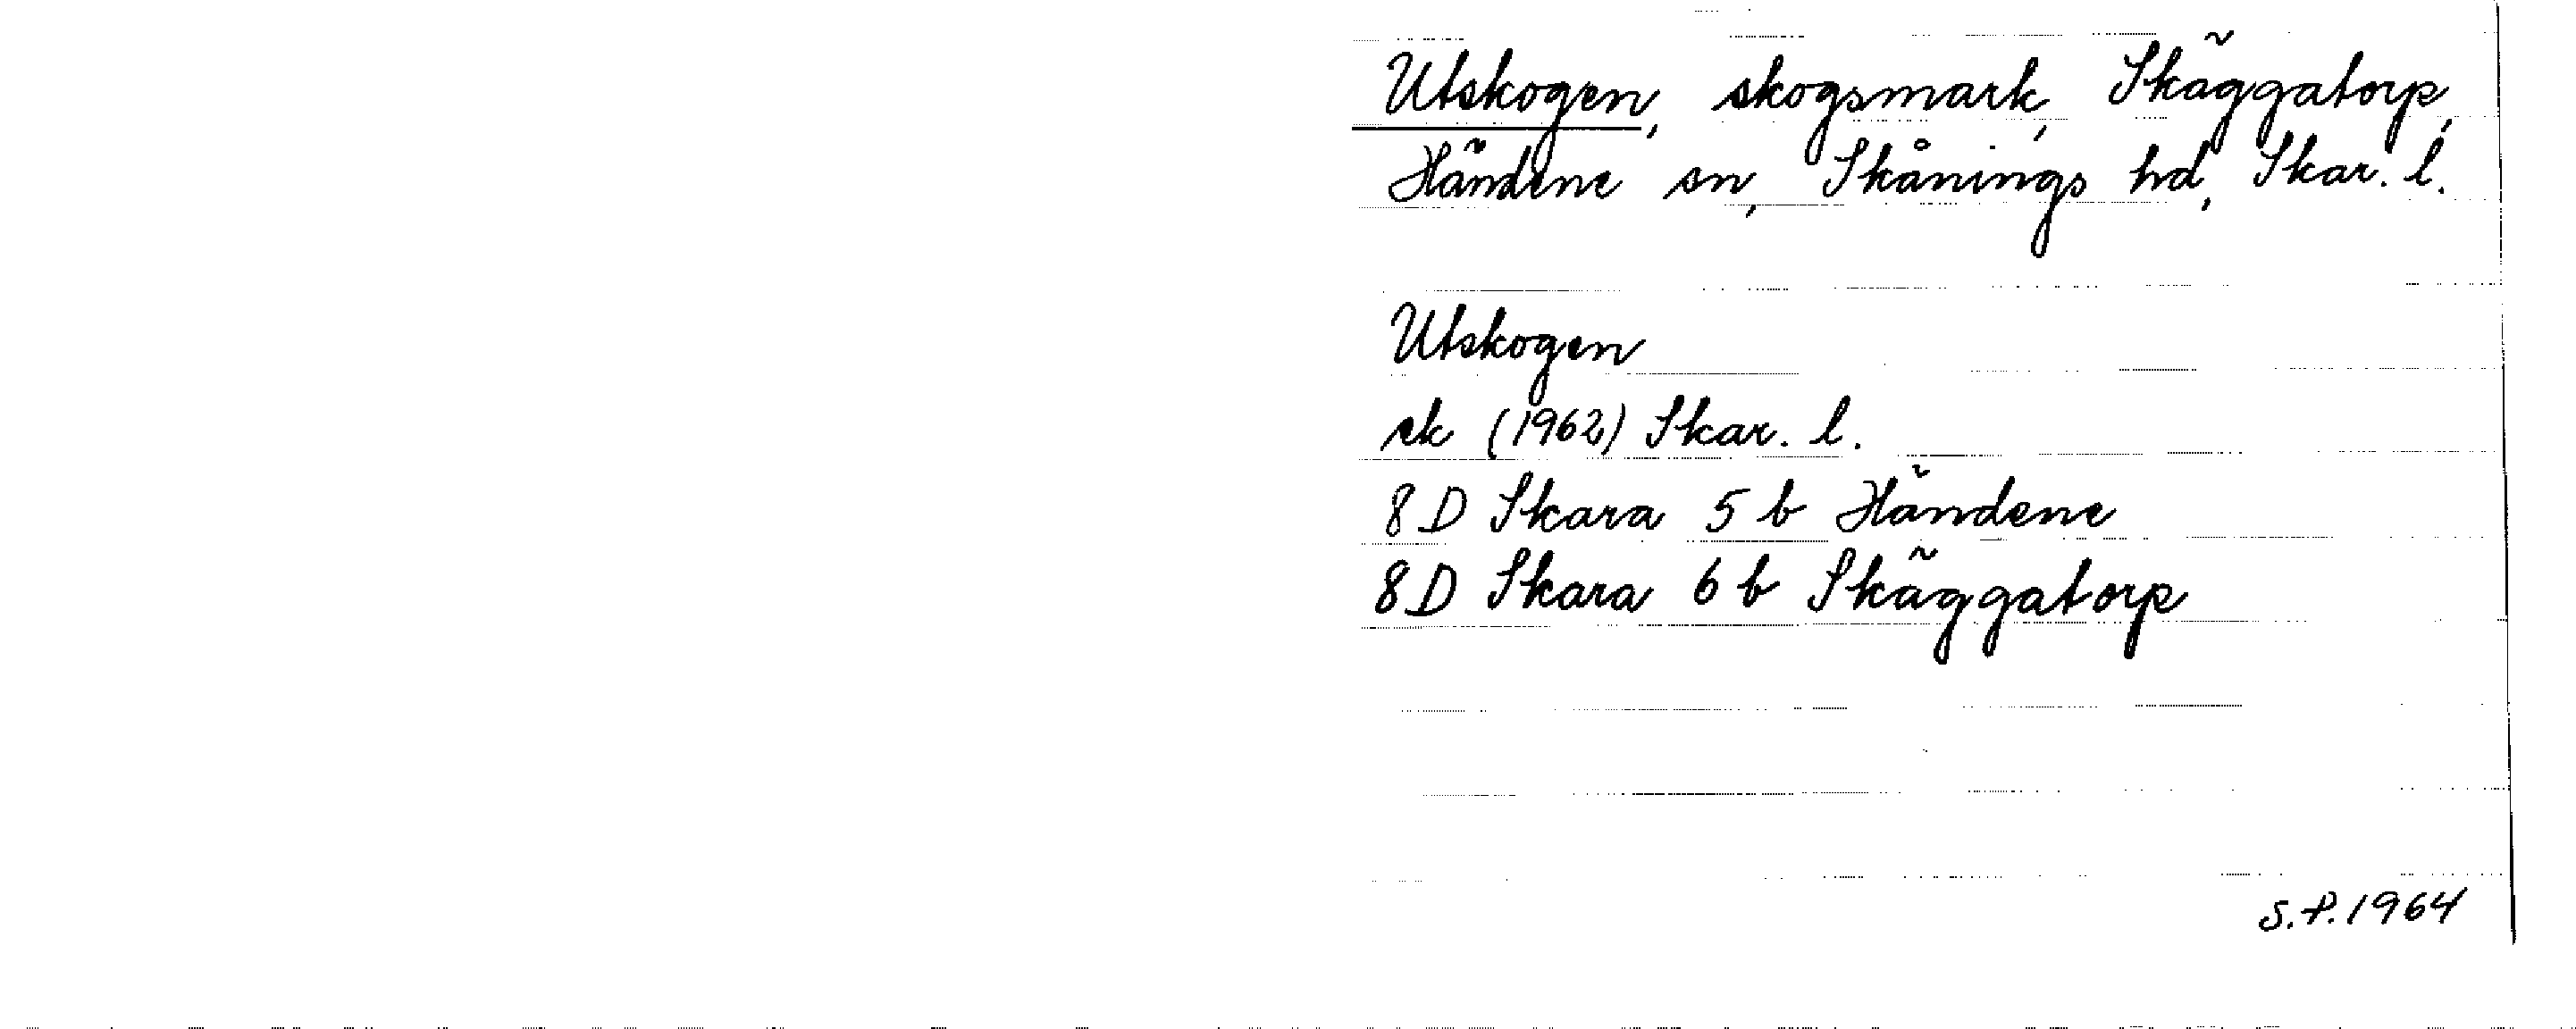 Utskogen, skogsmark, Skäggatorp,
Händene sn, Skånings hd, Skar. l.
Utskogen
ek (1962) Skar. l.
8 D Skara 5 b Händene
8 D Skara 6 b Skäggatorp
S.P. 1964